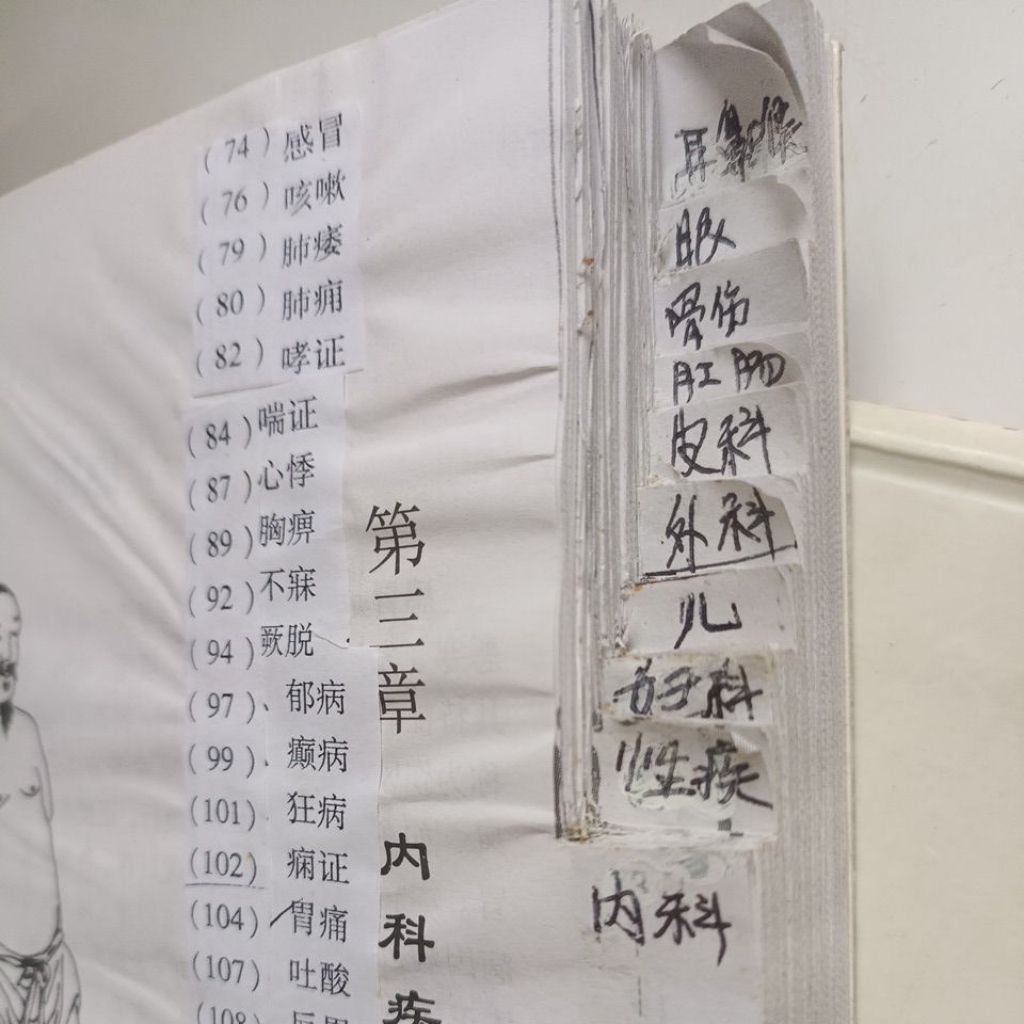 (74) 感冒
(76) 咳嗽
(79) 肺痿
(80) 肺痈
(82) 哮证
(84) 喘证
(87) 心悸
(89) 胸痹
(92) 不寐
(94) 厥脱
(97)、郁病
(99)、癫病
(101) 狂病
(102) 痫证
(104) 胃痛
(107) 吐酸
(108)
第三章
内科疾
耳鼻喉
眼
骨伤
肛肠
皮科
外科
儿
妇科
性疾
内科